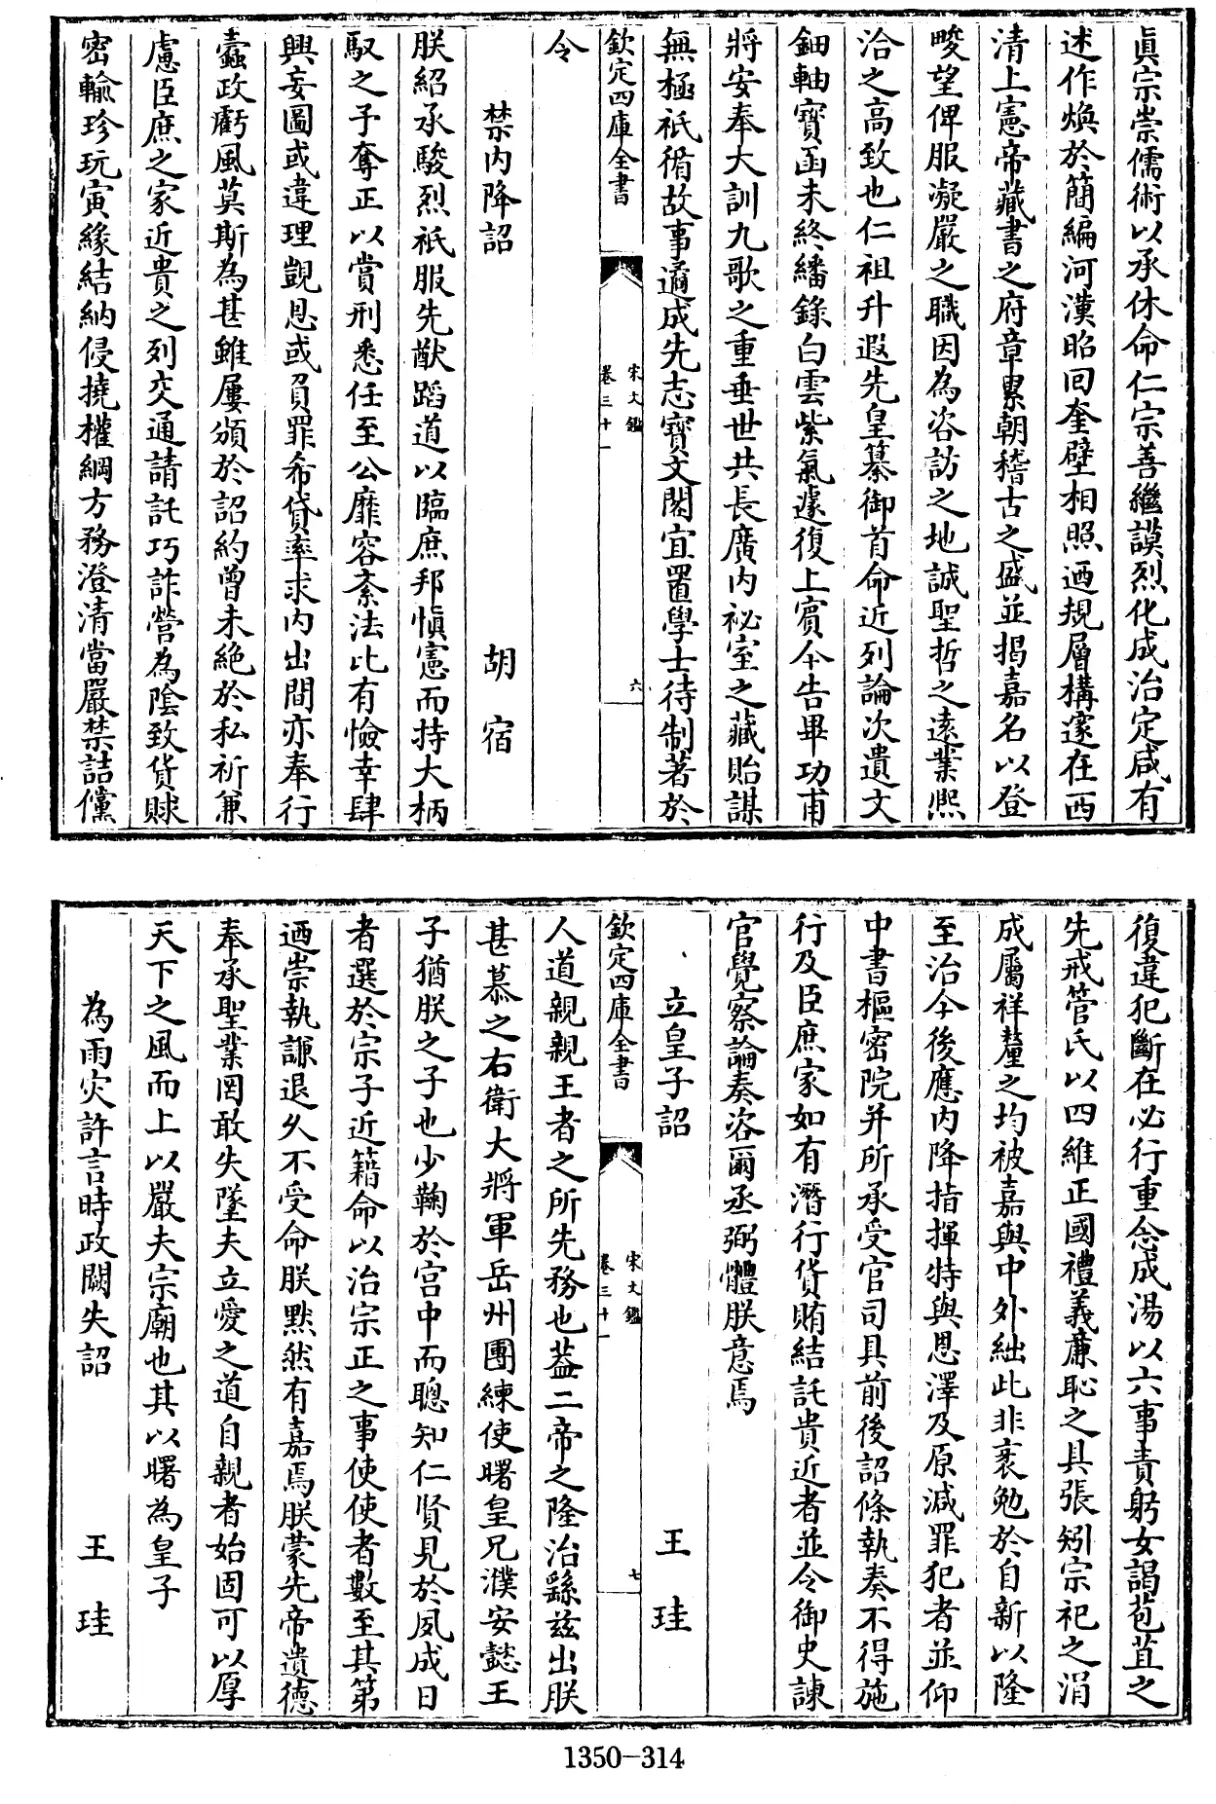 真宗崇儒術以承休命仁宗善繼謨烈化成治定咸有
述作煥於簡編河漢昭回奎壁相照迺規層構邃在西
清上憲帝藏書之府章累朝稽古之盛並揭嘉名以登
畯望俾服凝嚴之職因為咨訪之地誠聖哲之遠業熈
洽之高致也仁祖升遐先皇纂御首命近列論次遺文
鈿軸寳函未終繙錄白雲紫氣遽復上賓今告畢功甫
將安奉大訓九歌之重垂世共長廣内祕室之藏貽謀
無極祇循故事遹成先志寳文閣宜置學士待制著於
欽定四庫全書
宋文鑑
卷三十一
六
令
禁内降詔
胡宿
朕紹承駿烈祇服先猷蹈道以臨庶邦愼憲而持大柄
馭之予奪正以賞刑悉任至公靡容紊法比有憸幸肆
興妄圖或違理覬恩或負罪希貸率求内出間亦奉行
蠧政虧風莫斯為甚雖屢頒於詔約曾未絶於私祈兼
慮臣庶之家近貴之列交通請託巧詐營為陰致貨賕
密輸珍玩寅緣結納侵撓權綱方務澄清當嚴禁詰儻
復違犯斷在必行重念成湯以六事責躬女謁苞苴之
先戒管氏以四維正國禮義廉恥之具張矧宗祀之涓
成屬祥釐之均被嘉與中外絀此非衺勉於自新以隆
至治今後應内降指揮特與恩澤及原減罪犯者並仰
中書樞密院并所承受官司具前後詔條執奏不得施
行及臣庶家如有潛行貨賄結託貴近者並令御史諫
官覺察論奏咨爾丞弼體朕意焉
立皇子詔
王珪
欽定四庫全書
宋文鑑
卷三十一
七
人道親親王者之所先務也葢二帝之隆治繇兹出朕
甚慕之右衛大將軍岳州團練使曙皇兄濮安懿王
子猶朕之子也少鞠於宫中而聰知仁賢見於夙成日
者選於宗子近籍命以治宗正之事使使者數至其第
迺崇執謙退久不受命朕默然有嘉焉朕蒙先帝遺德
奉承聖業罔敢失墜夫立愛之道自親者始固可以厚
天下之風而上以嚴夫宗廟也其以曙為皇子
為雨灾許言時政闕失詔
王珪
1350-314